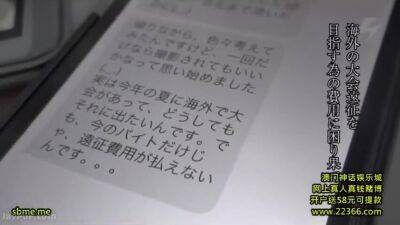 帰りながら、色々考えて
みたんですけど、一回だ
けなら撮影されてもいい
かなって思い始めました
(__)
実は今年の夏に海外で大
会があって、どうしても
それに出たいんです。で
も、今のバイトだけじ
ゃ、遠征費用が払えない
んです。。。
海外の大会遠征を
目指す為の費用に困り果
澳门神话娱乐城
网上真人真钱赌博
开户送58元可提款
www.22366.com
sbme.me